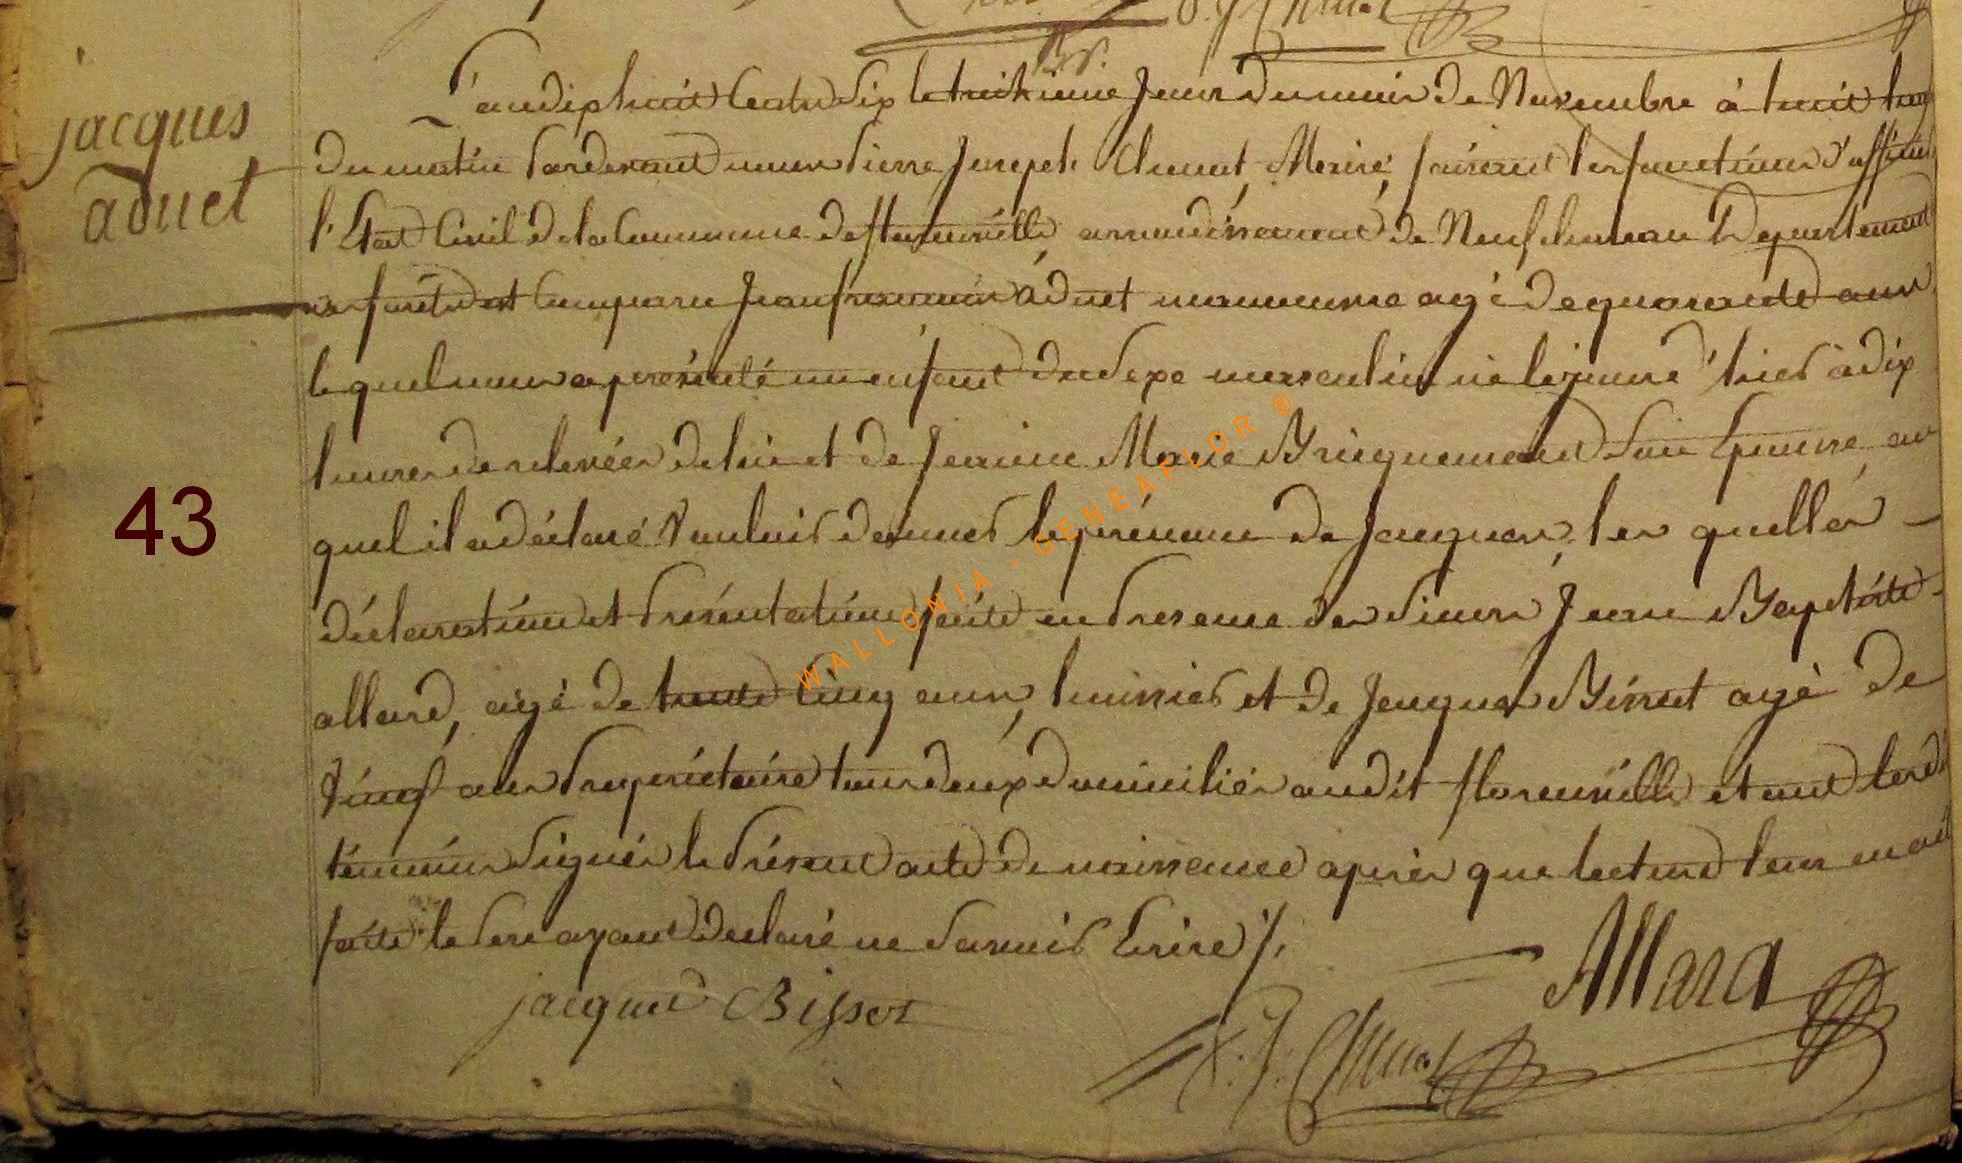 jacques
adnet
43
L'an dix huit Cent Six le treizieme Jour du mois de Novembre à huit heures
du matin Pardevant nous Pierre Joseph Clument, Maire, faisant les fonctions d'officier
l'Etat Civil de la Commune de florenville, arrondissement de Neufchateau Departement
des forêts est Comparu Jean françois adnet manoeuvre agé de quarante ans
lequel nous a présenté un enfant du Sexe masculin né le jour d'hier à dix
heures de relevées de lui et de Jeanne Marie Bricquemont Son Epouse, au
quel il a déclaré Vouloir donner le prénom de Jacques, les quelles
déclaration et Présentation faite en Presence des Sieurs Jean Baptiste
allard, agé de trente Cinq ans, huissier et de Jacques Bissot agé de
Vingt ans Propriétaire tous deux domiciliés audit florenville et ont lesdits
témoins Signés le Présent acte de naissance après que lecture leur en a été
faite le Pere ayant declaré ne Savoir Ecrire /.
jacques Bissot
Allard
P. J. Clument
WALLONIA - GENEAFLOR ®